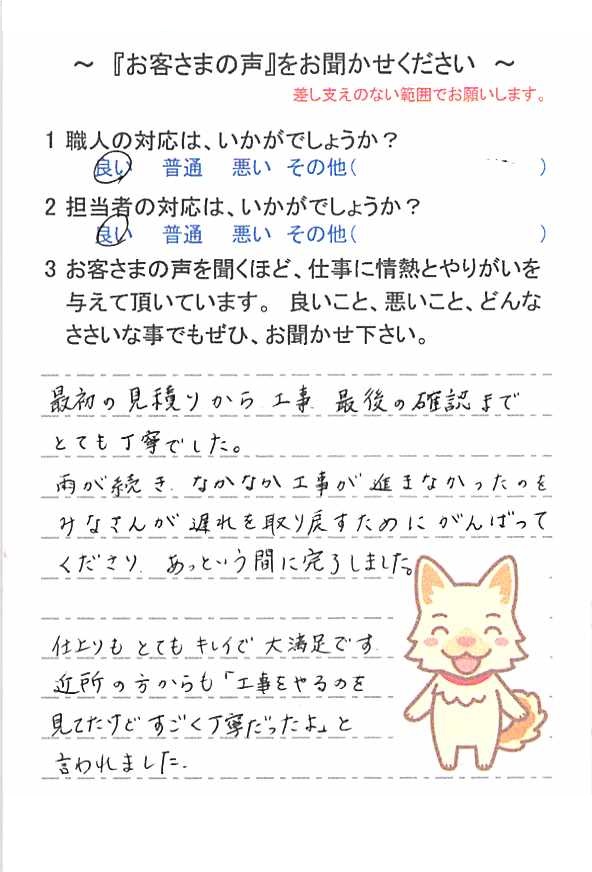 ～ 『お客さまの声』をお聞かせください ～
差し支えのない範囲でお願いします。
1 職人の対応は、いかがでしょうか？
良い 普通 悪い その他( )
2 担当者の対応は、いかがでしょうか？
良い 普通 悪い その他( )
3 お客さまの声を聞くほど、仕事に情熱とやりがいを
与えて頂いています。 良いこと、悪いこと、どんな
ささいな事でもぜひ、お聞かせ下さい。
最初の見積りから工事、最後の確認まで
とても丁寧でした。
雨が続き、なかなか工事が進まなかったのを
みなさんが遅れを取り戻すためにがんばって
くださり、あっという間に完了しました。
仕上りもとてもキレイで大満足です
近所の方からも「工事をやるのを
見てたけどすごく丁寧だったよ」と
言われました.